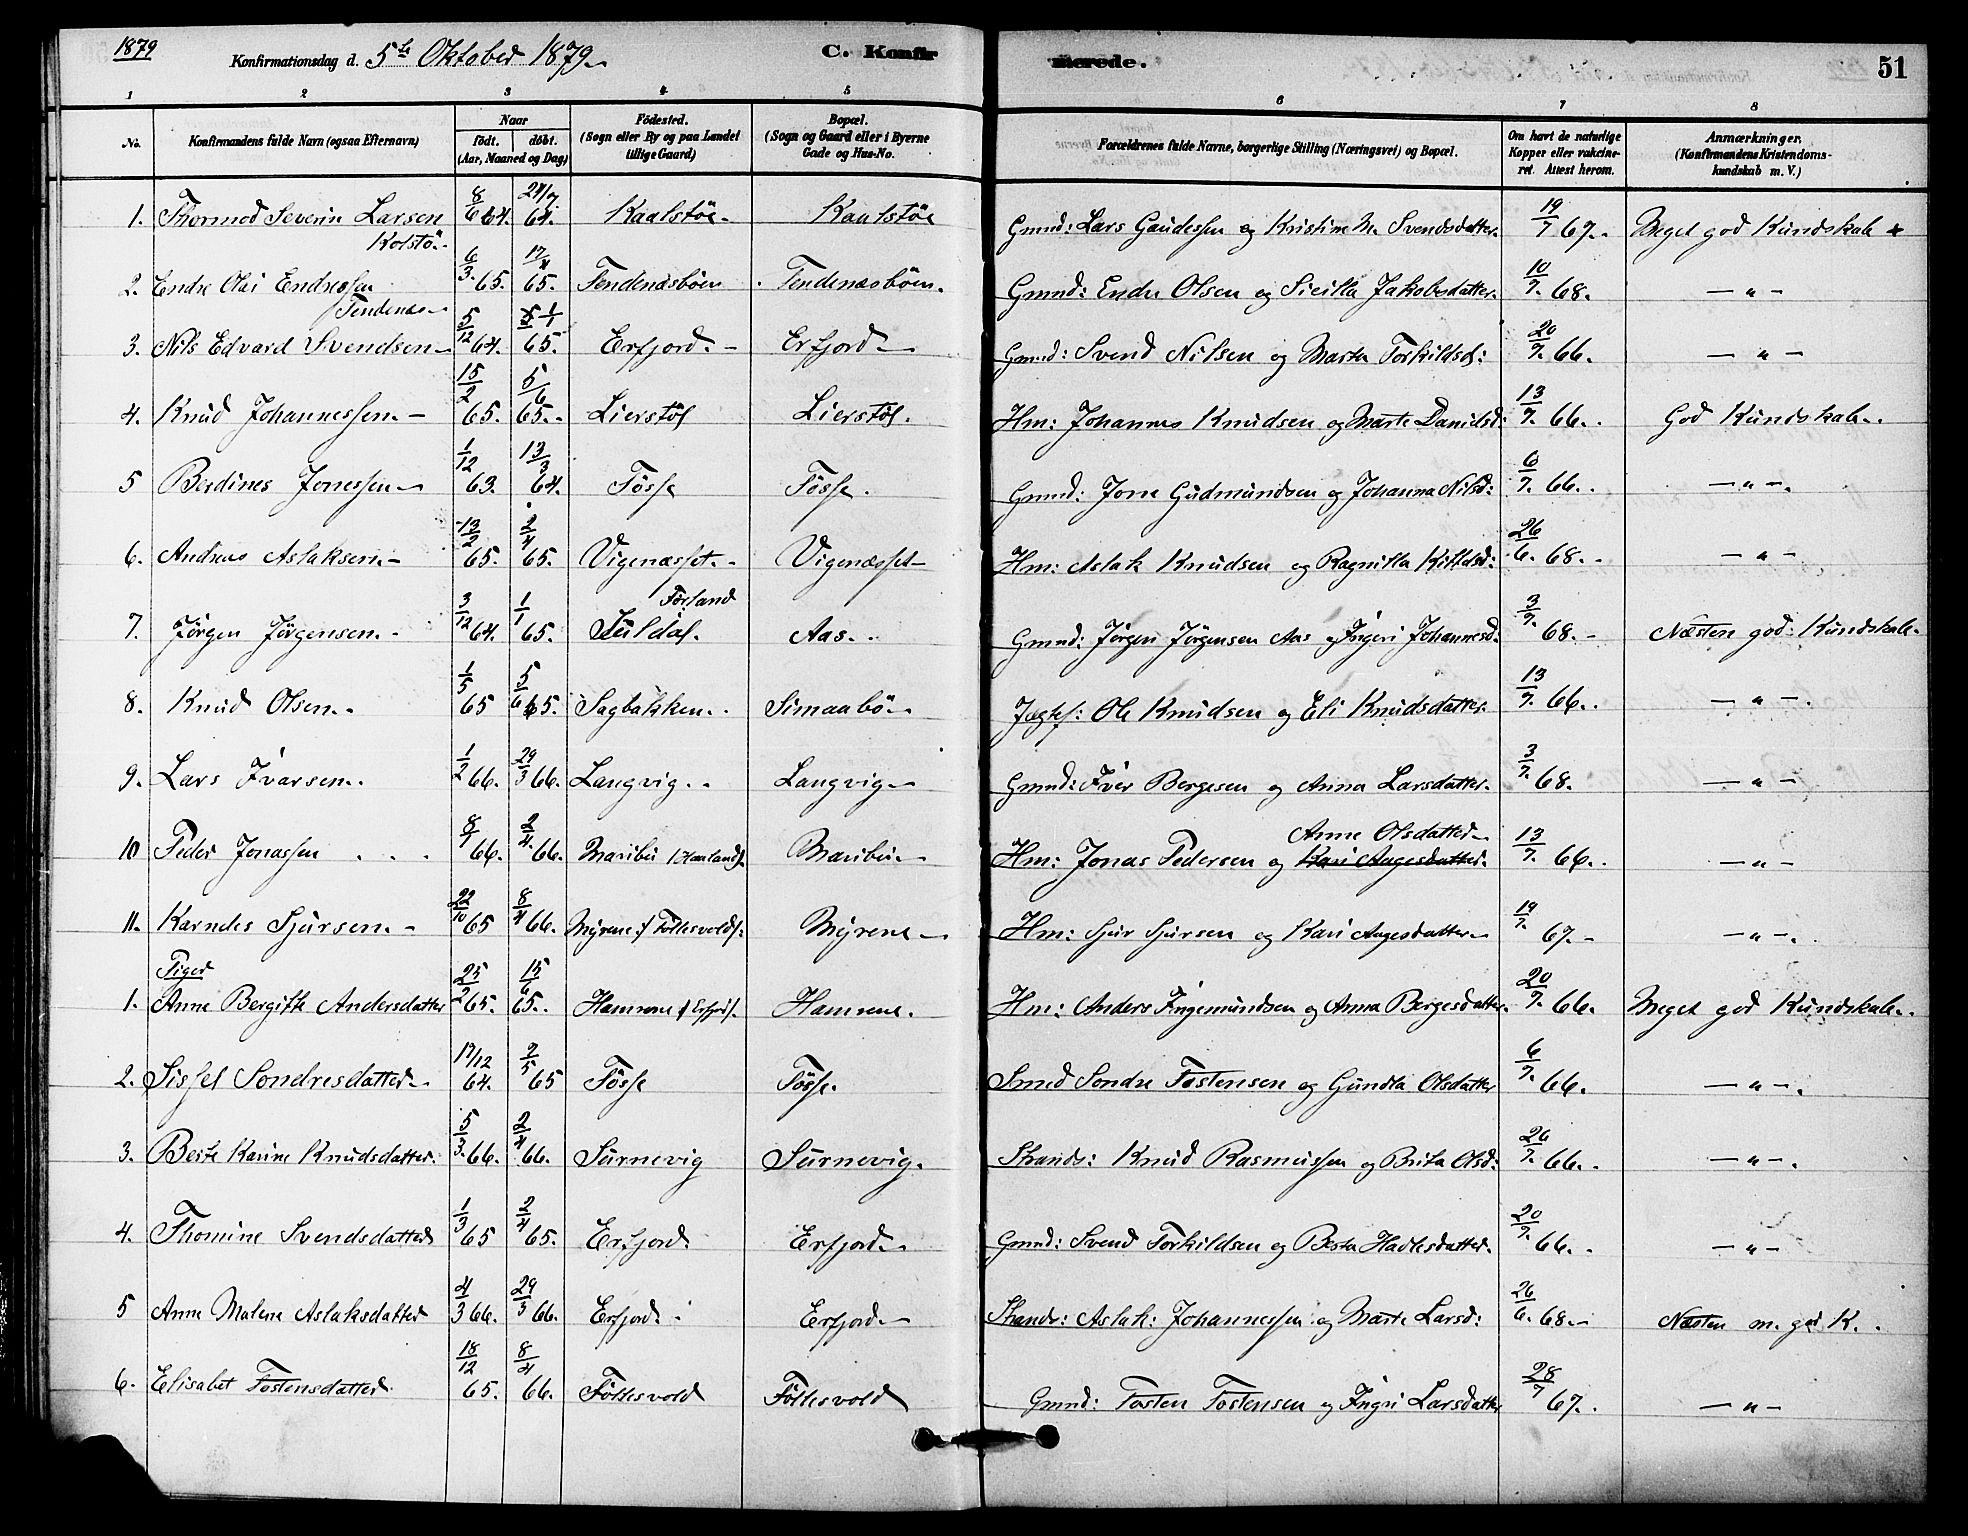 1879 Konfirmationsdag d. 5te Oktober 1879. C. Konfirmerede. 51
1 2 3 4 5 6 7 8
No. Konfirmandens fulde Navn (ogsaa Efternavn) Naar født. døbt. (Aar, Maaned og Dag) Fødested. (Sogn eller By og paa Landet tillige Gaard) Bopæl. (Sogn og Gaard eller i Byerne Gade og Hus-No. Forældrenes fulde Navne, borgerlige Stilling (Næringsvei) og Bopæl. Om havt de naturlige Kopper eller vaksineret. Attest herom. Anmærkninger. (Konfirmandens Kristendomskundskab m. V.)
1. Thormod Severin Larsen Kolstö. 8/6 64. 24/7 64. Kaalstöe Kaalstöe Gmnd: Lars Gaudessen og Kristine M. Svendsdatter. 19/7 67. Meget god Kundskab
2. Endre Olai Endressen Tendenes 6/3 65. 17/4 65. Tendenæsböen Tendenæsböen. Gmnd: Endre Olsen og Sicilla Jakobsdatter. 10/7 68. — " —
3. Nils Edvard Svendsen 5/12 64. 1/1 65. Erfjord. Erfjord Gmnd: Svend Nilsen og Marta Torkildsd: 20/7 66. — " —
4. Knud Johannessen. 15/2 65. 5/6 65. Lierstöl Lierstöl. Hm: Johannes Knudsen og Marte Danielsd: 13/7 66. God Kundskab.
5 Berdines Jonessen 1/12 63. 13/3 64. Tösse Tösse. Gmnd: Jone Gudmundsen og Johanna Nilsd: 6/7 66. — " —
6. Andreas Aslaksen. 13/2 65. 2/4 65. Vigenæsset. Vigenæsset Hm: Aslak Knudsen og Ragnilla Kittelsd: 26/6 68. — " —
7. Jørgen Jørgensen. 3/12 64. 1/1 65. Førland Suldal. Aas. Gmnd: Jørgen Jørgensen Aas og Ingeri Johannesd. 3/7 68. Næsten god Kundskab.
8. Knud Olsen. 1/5 65 5/6 65. Sagbakken. Simaabö. Ole Knudsen og Eli Knudsdatter. 13/7 66. — " —
9. Lars Ivarsen. 1/2 66. 29/3 66. Langvig. Langvig Gmnd: Iver Bergesen og Anna Larsdatter. 3/7 68. — " —
10 Peder Jonassen 8/1 66. 2/4 66. Maribu Maribu. Hm: Jonas Pedersen og Kari Aagesdatter. Anne Olsdatter 13/7 66. — " —
11. Karndes Sjursen. 22/10 65 8/4 66. Myrene /Töttesvold/. Myrene Hm: Sjur Sjursen og Kari Aagesdatter 19/7 67. — " —
Piger
1. Anne Bergitte Andersdatter 25/2 65. 15/6 65. Hamrene /Erfjord/. Hamrene. Hm: Anders Ingemundsen og Anna Bergesdatter. 20/7 66. Meget god Kundskab.
2. Sissel Sondresdatter 17/12 64. 2/5 65 Tösse Tösse. Smed Sondre Tostensen og Gundla Olsdatter 6/7 66. — " —
3. Berte Karine Knudsdatter. 5/3 66. 2/4 66. Surnevig Surnevig. Strands: Knud Rasmussen og Brita Olsd: 26/7 66. — " —
4. Thomine Svendsdatter 1/3 65 2/4 65. Erfjord Erfjord. Gmnd: Svend Torkildsen og Berta Hadlesdatter. 20/7 66. — " —
5 Anne Malene Aslaksdatter 4/3 66. 29/3 66. Erfjord. Erfjord. Strands: Aslak Johannessen og Marte Larsd: 26/6 68. Næsten m. god K.
6. Elisabet Tostensdatter 18/12 65. 8/4 66. Töttesvold Töttesvold Gmnd: Tosten Tostensen og Ingri Larsdatter 28/7 67. — " —